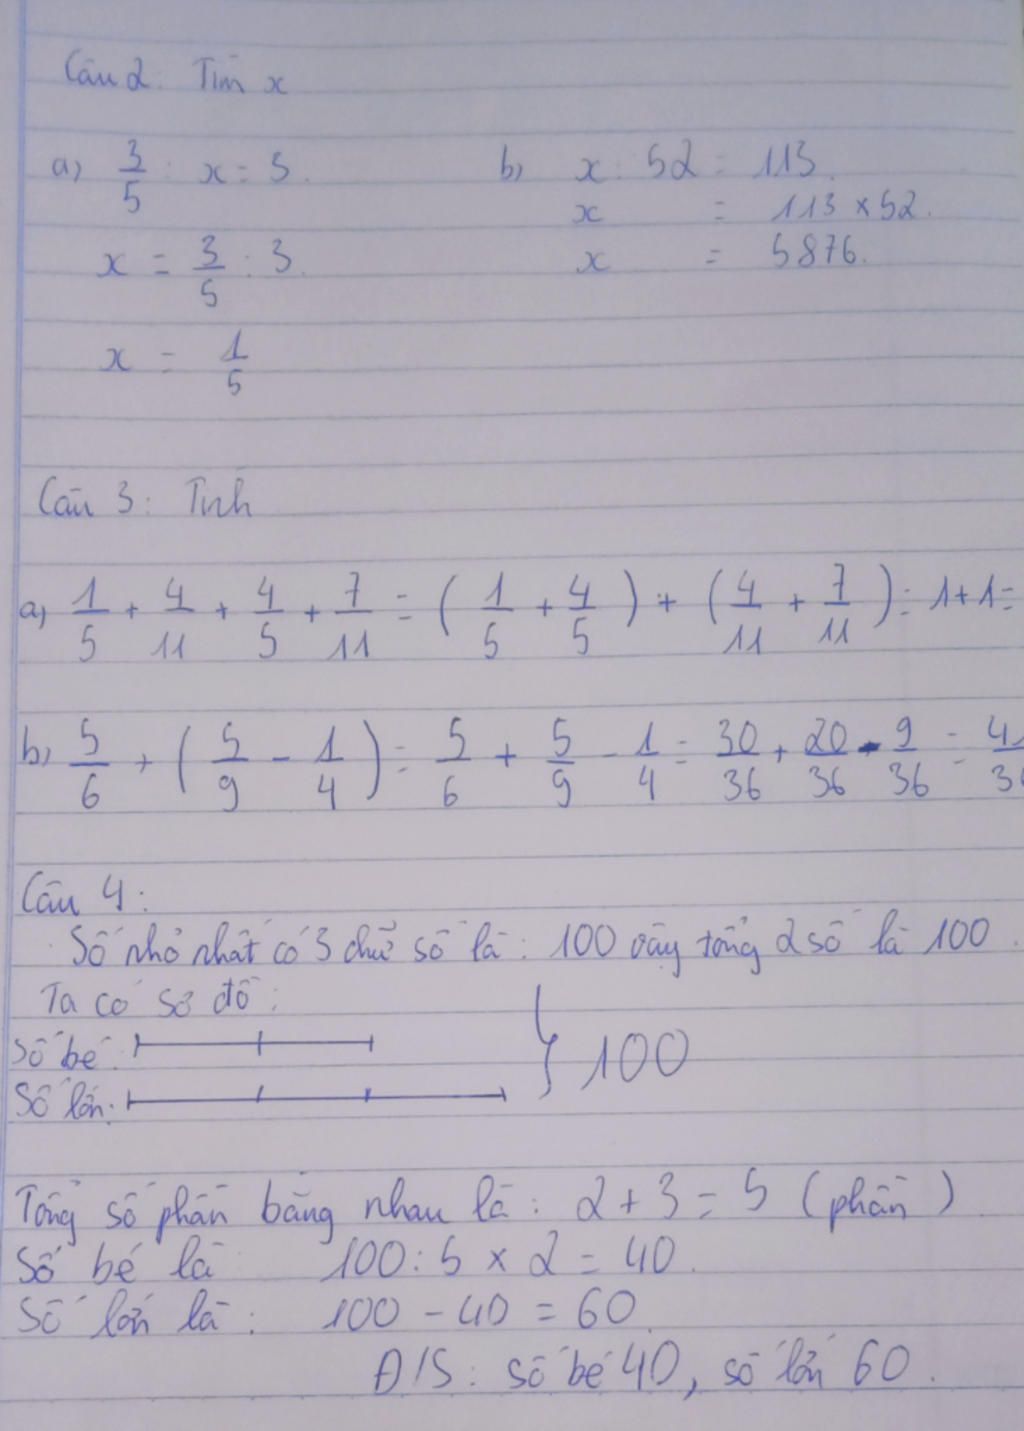 Câu 2: Tìm x
a) 3/5 : x = 3. b) x : 52 = 113.
x = 113 × 52.
x = 3/5 : 3. x = 5876.
x = 1/5
Câu 3: Tính
a) 1/5 + 4/11 + 4/5 + 7/11 = (1/5 + 4/5) + (4/11 + 7/11) = 1+1=
b) 5/6 + (5/9 - 1/4) = 5/6 + 5/9 - 1/4 = 30/36 + 20/36 - 9/36 =
Câu 4:
Số nhỏ nhất có 3 chữ số là: 100 vậy tổng 2 số là 100.
Ta có sơ đồ:
Số bé:
100
Số lớn:
Tổng số phần bằng nhau là: 2 + 3 = 5 (phần)
Số bé là 100 : 5 × 2 = 40.
Số lớn là: 100 - 40 = 60.
Đ/S: số bé 40, số lớn 60.